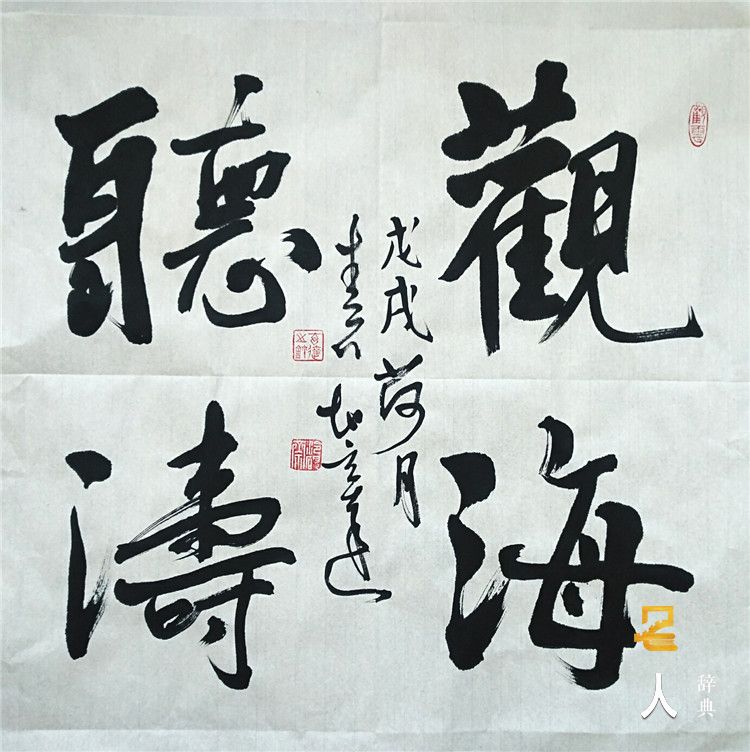 觀海
戊戌荷月
聽濤
名人
辞典